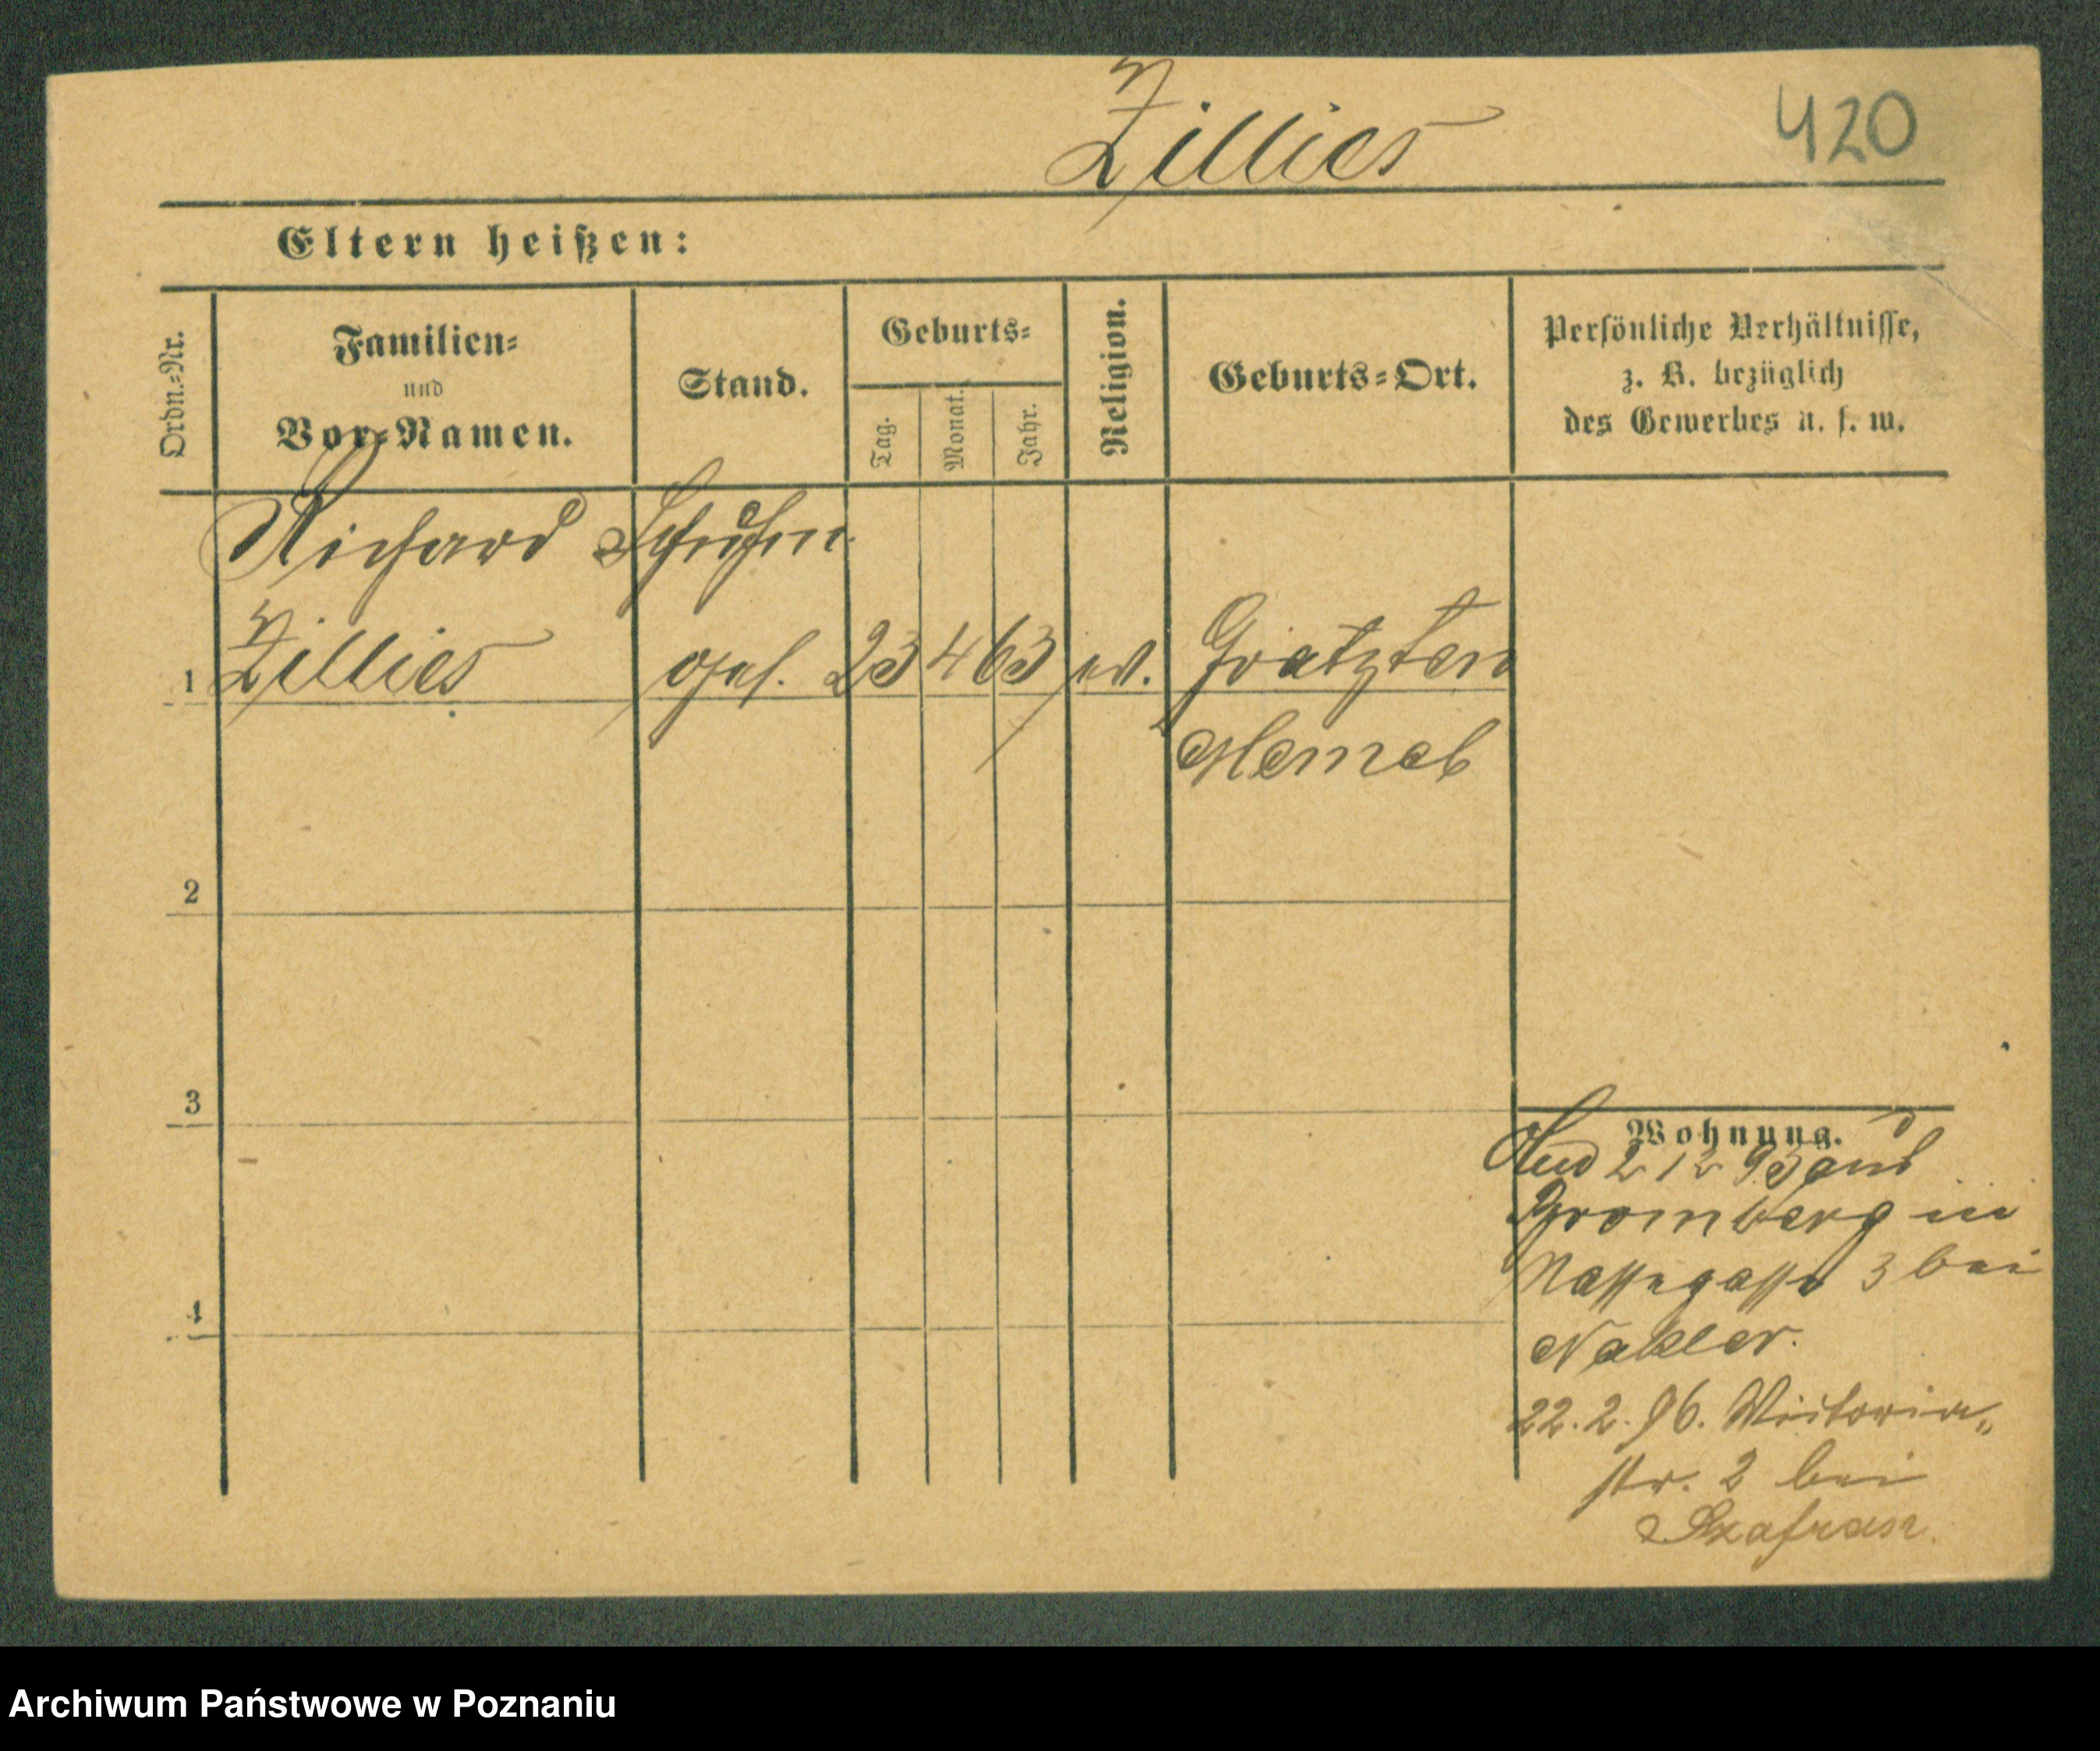 Zillies
420
Eltern heißen:
Ordn.-Nr.
Familien-
und
Vor-Namen.
Stand.
Geburts-
Tag.
Monat.
Jahr.
Religion.
Geburts-Ort.
Persönliche Verhältnisse,
z. B. bezüglich
des Gewerbes u. s. w.
Richard
1 Zillies 23 4 63 ev. Grätzken
2
3
4
Wohnung.
2 12 93 aus
Bromberg in
Nassegasse 3 bei
Nakler.
22. 2. 96. Victoria-
str. 2 bei
Szafran.
Archiwum Państwowe w Poznaniu